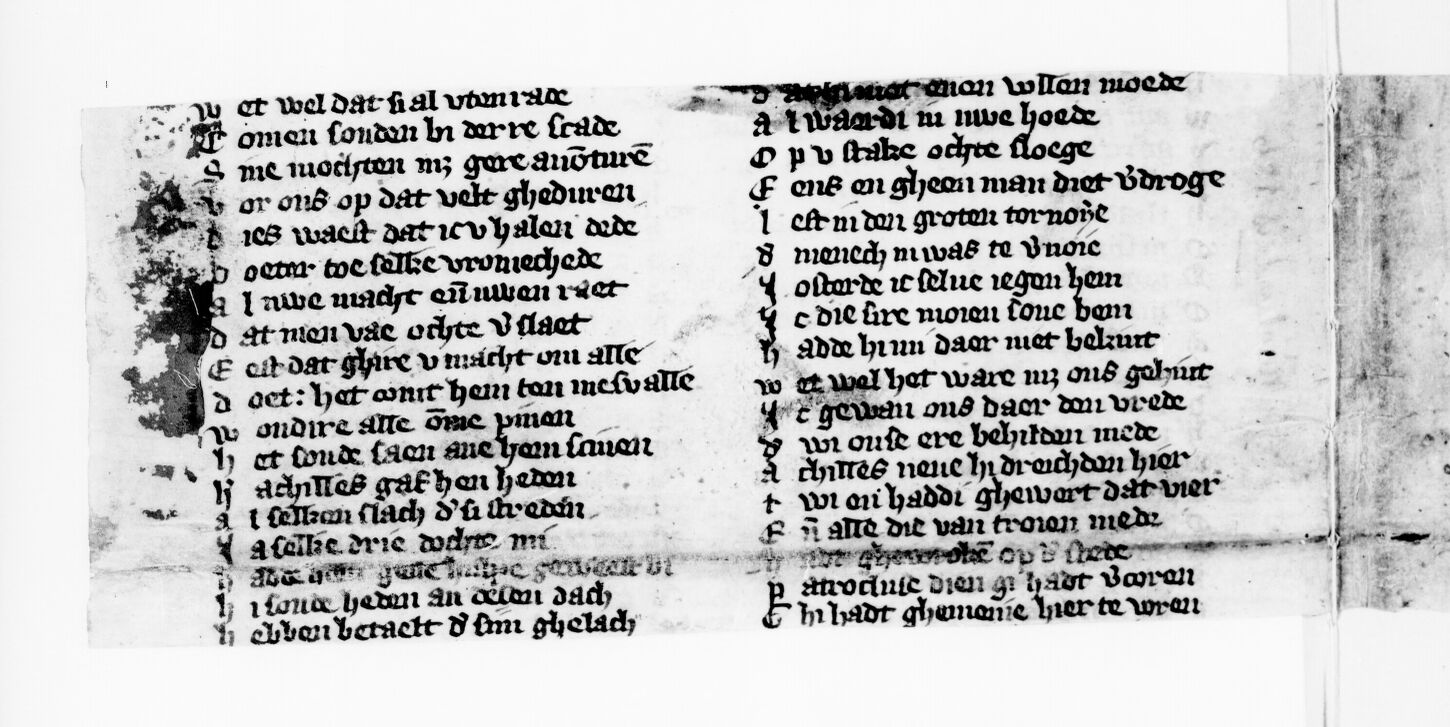 w et wel dat si al vten rade
C omen souden bi derre scade
S ine mochten mȝ gere auōturē
v or ons op dat velt gheduren
d ies waest dat ic v halen dede
d oeter toe selke vromechede
a l uwe macht eñ uwen raet
d at men vae ochte v̄slaet
E est dat ghire v macht om alle
d oet : het comt hem ten mesvalle
w ondire alle ōme pinen
h et soude saen ane hem scinen
h achilles gaf hen heden
a l selken slach d's si streden
y a selke drie dochte mi
h adde hem gene hulpe geweest bi
h i soude heden an desen dach
h ebben betaelt d' sijn ghelach
d at hi met enen vollen moede
a l waerdi in uwe hoede
O p v stake ochte sloege
E ens en gheen man diet v̄droge
l est in den groten tornoye
d menech in was te v̄noie
y osterde ic selue iegen hem
y c die sire moien sone bem
h adde hi mi daer niet bekint
w et wel het ware mȝ ons gehint
y c gewan ons daer den vrede
d wi onse ere behilden mede
a chilles neue hi dreichden hier
t wi en haddi ghewert dat vier
E ñ alle die van troien mede
h adt ghewrokē op d' stede
p atrocluse dien gi hadt v̄coren
E hi hadt ghemenie hier te voren